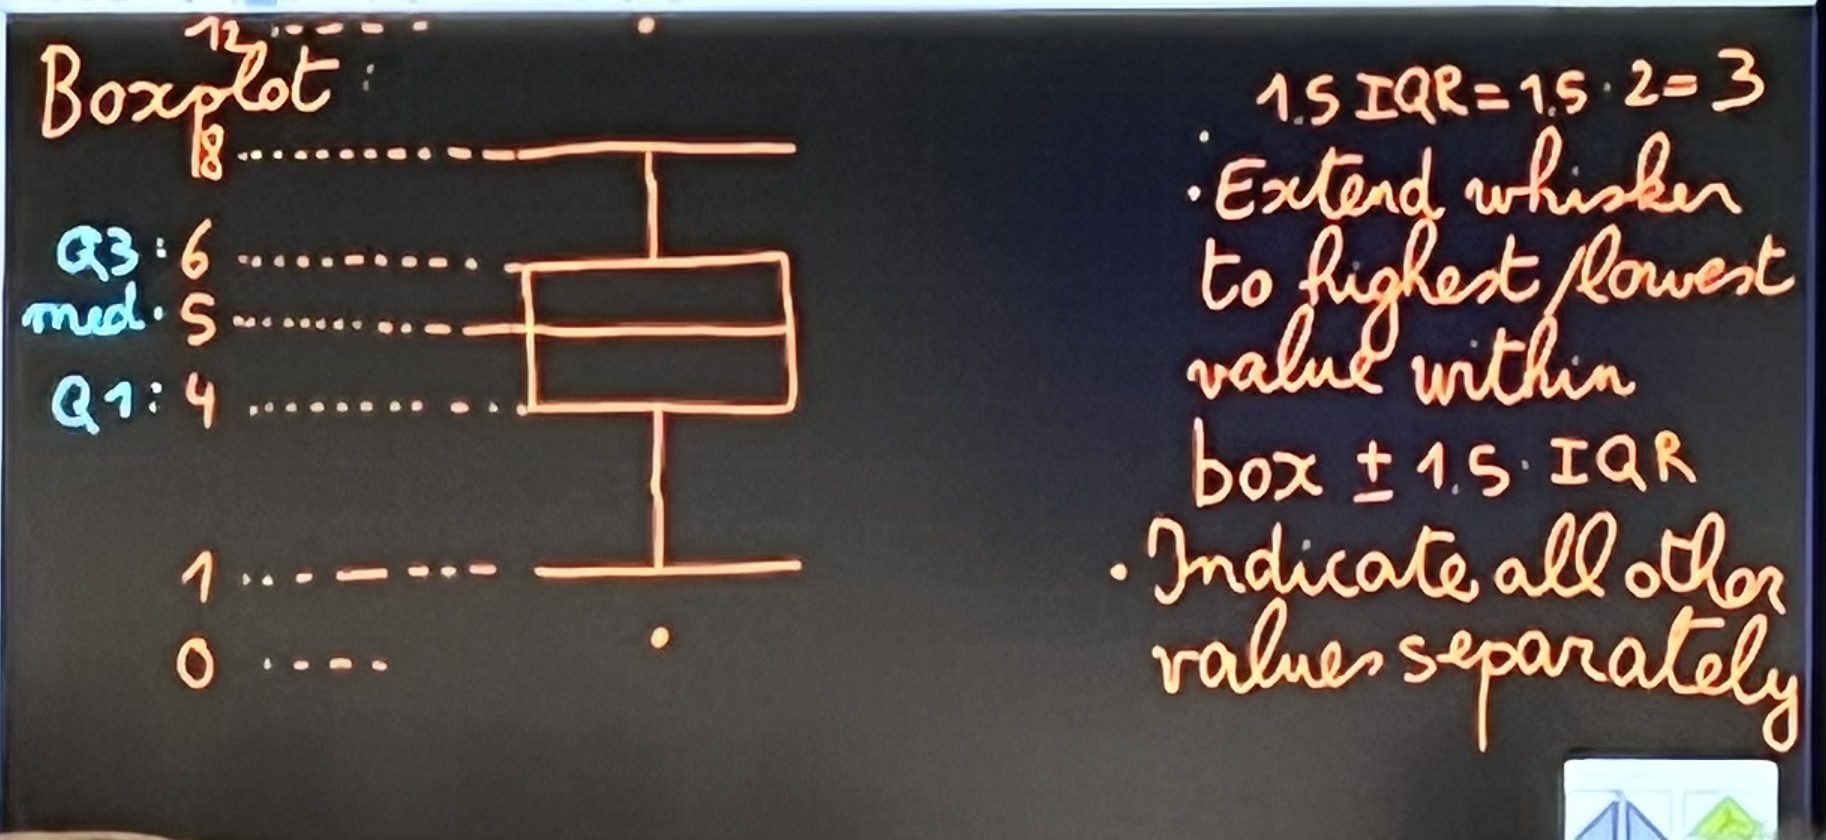 12
Boxplot:
8
Q3: 6
med: 5
Q1: 4
1
0
1.5 IQR = 1.5 · 2 = 3
· Extend whisker
to highest/lowest
value within
box ± 1.5 · IQR
· Indicate all other
values separately